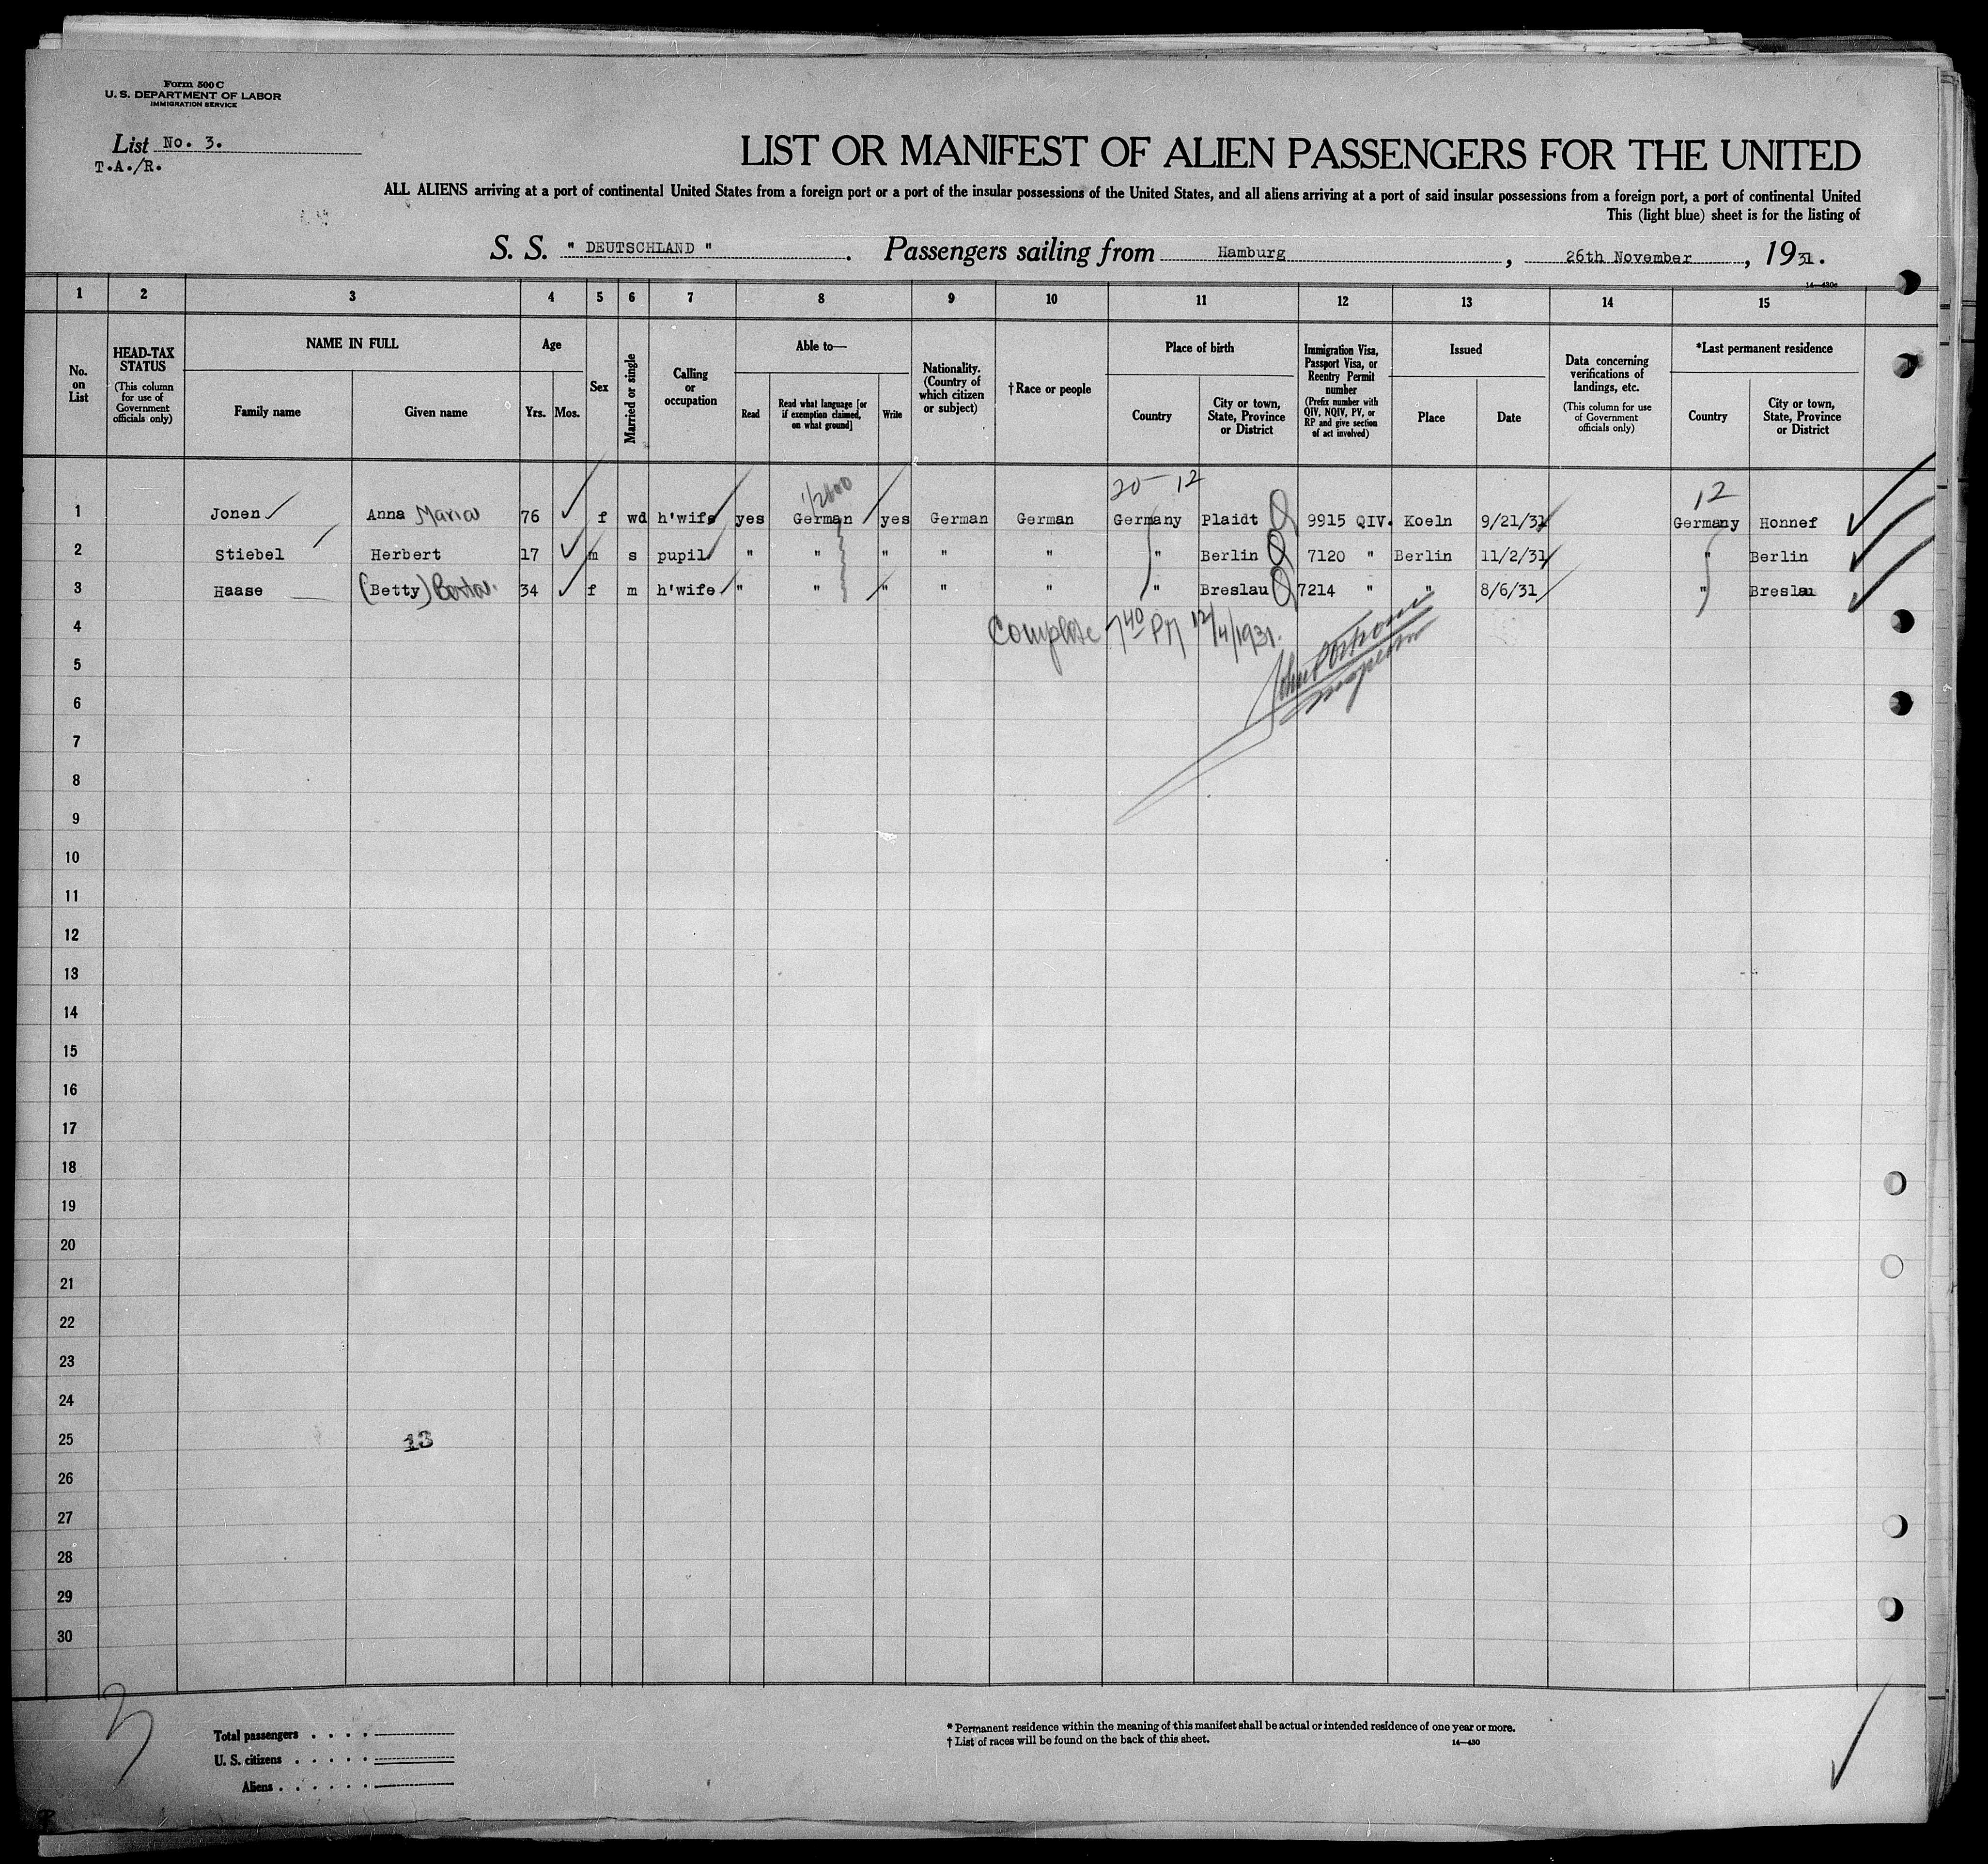 Form 500 C
U. S. DEPARTMENT OF LABOR
IMMIGRATION SERVICE
List No. 3.
T.A./R.
LIST OR MANIFEST OF ALIEN PASSENGERS FOR THE UNITED
ALL ALIENS arriving at a port of continental United States from a foreign port or a port of the insular possessions of the United States, and all aliens arriving at a port of said insular possessions from a foreign port, a port of continental United
This (light blue) sheet is for the listing of
S. S. " DEUTSCHLAND " . Passengers sailing from Hamburg , 26th November , 1931.
14—430c
1 2 3 4 5 6 7 8 9 10 11 12 13 14 15
No. on List
HEAD-TAX STATUS
(This column for use of Government officials only)
NAME IN FULL
Family name Given name
Age
Yrs. Mos.
Sex
Married or single
Calling or occupation
Able to—
Read
Read what language [or if exemption claimed, on what ground]
Write
Nationality. (Country of which citizen or subject)
†Race or people
Place of birth
Country
City or town, State, Province or District
Immigration Visa, Passport Visa, or Reentry Permit number
(Prefix number with QIV, NQIV, PV, or RP and give section of act involved)
Issued
Place Date
Data concerning verifications of landings, etc.
(This column for use of Government officials only)
*Last permanent residence
Country
City or town, State, Province or District
20 - 12 12
1 Jonen Anna Maria 76 f wd h'wife yes German yes German German Germany Plaidt 9915 QIV. Koeln 9/21/31 Germany Honnef
2 Stiebel Herbert 17 m s pupil " " " " " " Berlin 7120 " Berlin 11/2/31 " Berlin
3 Haase (Betty) 34 f m h'wife " " " " " " Breslau 7214 " " 8/6/31 " Breslau
4 Complete 7 40 PM 12/4/1931.
5
6
7
8
9
10
11
12
13
14
15
16
17
18
19
20
21
22
23
24
25 13
26
27
28
29
30
Total passengers . . . .
U. S. citizens . . . . .
Aliens . . . . . .
* Permanent residence within the meaning of this manifest shall be actual or intended residence of one year or more.
† List of races will be found on the back of this sheet.
14—430